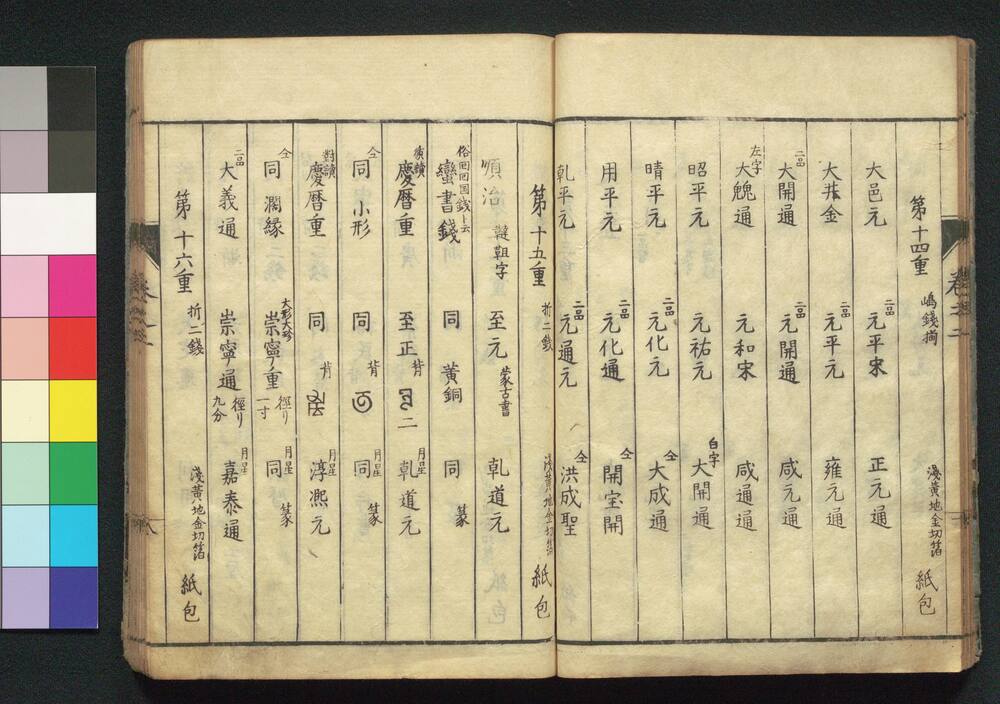 第十四重 嶋銭揃 浅黄地金切箔 紙包
大邑元 二品 元平宋 正元通
大井金 二品 元平元 雍元通
二品 大開通 二品 元開通 咸元通
左字 大魏通 元和宋 咸通通
昭平元 元祐元 白字 大開通
晴平元 二品 元化元 仝 大成通
用平元 二品 元化通 仝 開宝開
乹平元 二品 元通元 仝 洪成聖
第十五重 折二銭 浅黄地金切箔 紙包
順治 韃靼字 至元 蒙古書 乹道元
俗回回国銭ト云 蠻書錢 同 黄銅 同 篆
慶曆重 至正 背 二 月星 乹道元
仝 同 小形 同 背 月星 同 篆
對讀 慶曆重 同 背 月星 淳熈元
仝 同 濶縁 大形大珍 崇寧重 徑り一寸 月星 同 篆
二品 大義通 崇寧通 徑り九分 月星 嘉泰通
第十六重 折二錢 浅黄地金切箔 紙包